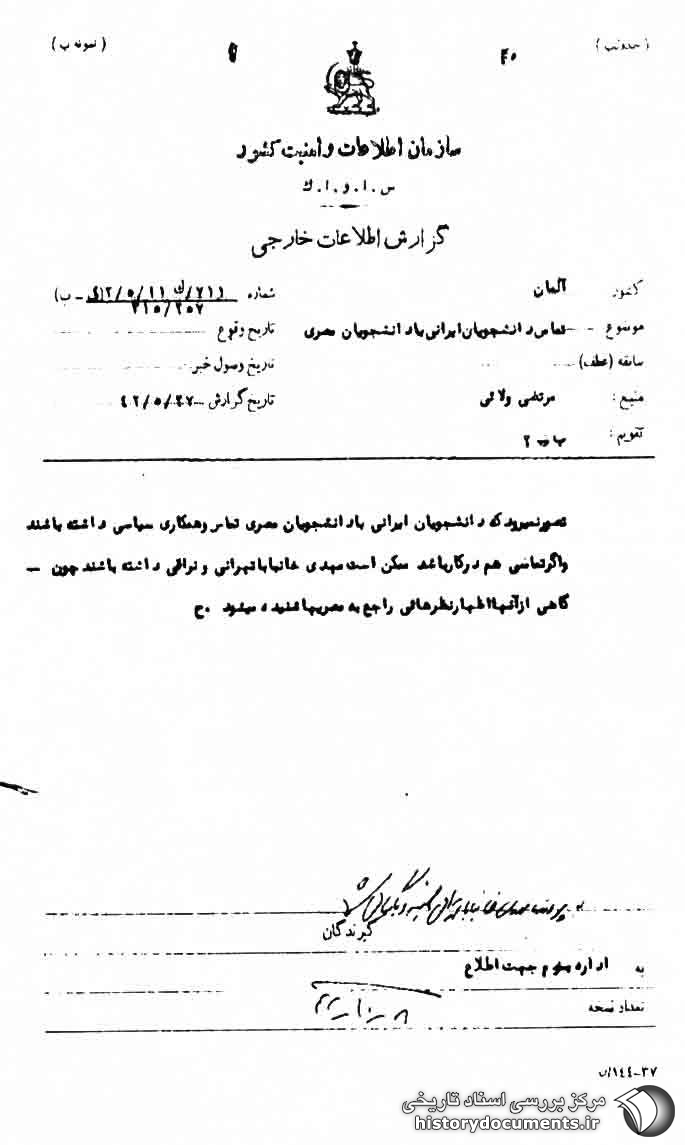 (نمونه ب)
۴۰
سازمان اطلاعات و امنیت کشور
س . ا . و . ا . ک
گزارش اطلاعات خارجی
کشور آلمان
شماره
۳۱۵/۲۵۷
موضوع تماس دانشجویان ایرانی با دانشجویان مصری
تاریخ وقوع
سابقه (عطف)
تاریخ وصول خبر
منبع : مرتضی ولائی
تاریخ گزارش ۴۲/۵/۲۷
تقویم :
تصور نمیرود که دانشجویان ایرانی با دانشجویان مصری تماس و همکاری سیاسی داشته باشند
واگر تماسی هم در کار باشد ممکن است مهدی خانبابا تهرانی و نراقی داشته باشند چون —
گاهی از آنها اظهار نظرهائی راجع به مصریها شنیده میشود . ح
گیرندگان
به اداره سوم جهت اطلاع
تعداد نسخه
۱۴۴-۳۷/ن
مرکز بررسی اسناد تاریخی
historydocuments.ir